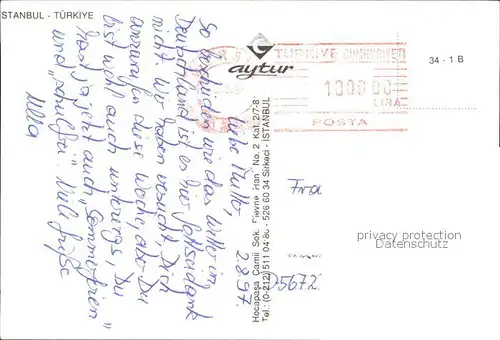 STANBUL - TÜRKIYE
aytur
TÜRKİYE CUMHURİYETİ
100000
LIRA
POSTA
34 - 1 B
Hocapaşa Camii Sok. Fievne Han No. 2 Kat. 2/7-8
Tel.: (0-212) 511 04 80 - 526 60 34 Sirkeci - İSTANBUL
2.8.97.
Liebe Mutter,
So trocken wie das Wetter in
Deutschland ist es hier Gottseidank
nicht. Wir haben versucht, Dich
anzurufen diese Woche, aber Du
bist wohl auch unterwegs, Du
hast ja jetzt auch "Sommerferien"
und "schulfrei". Viele Grüße
Ulla
Fra
D5672
privacy protection
Datenschutz